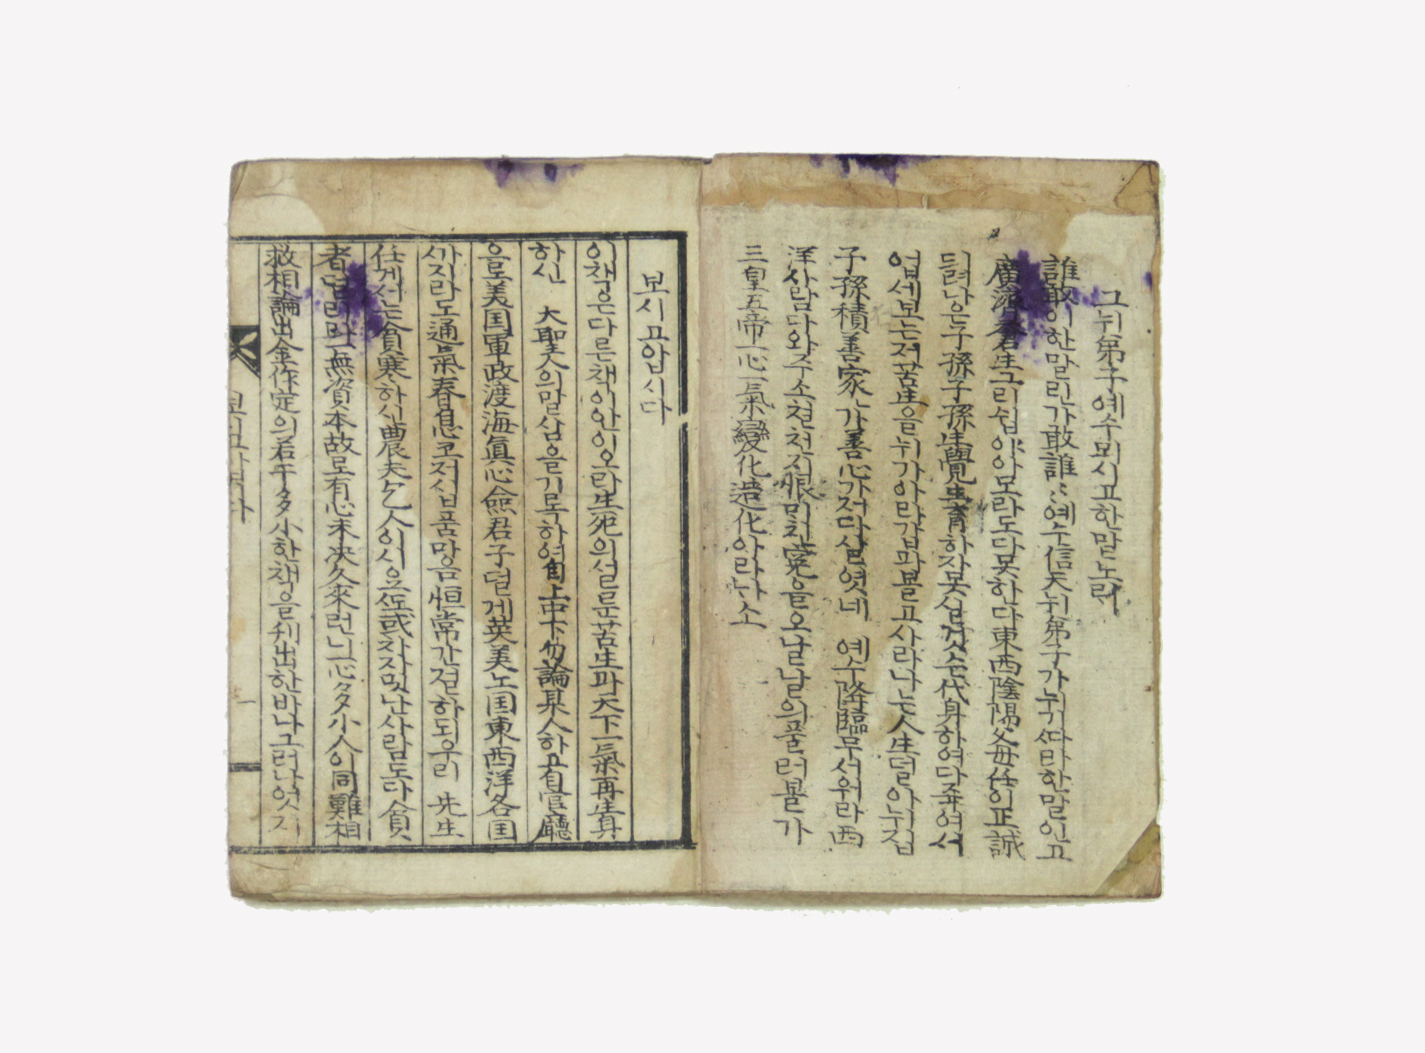 그뉘弟子예수뫼시고한말노래
誰敢이한말린가敢誰〻예수信天뉘弟子가뉘따라한말인고
廣濟蒼生그리쉽아야모라도다못하다東西陰陽父母任이正誠
듸려낳은子孫子孫生覺生育하잔못심것슨代身하여다죽여서
업세보는저苦生을뉘가아만갑파볼고사라나는人生덜안뉘집
子孫積善家가善心가저다살엿네 예수降臨무서워라西
洋사람다와주소쳔쳔지恨미친寃을오날날의풀러볼가
三皇五帝一心一氣變化造化알아나소
보시고압시다
이책은다른책이안이오라生死의설문苦生과天下一氣再生身
하신 大聖人의말삼을기록하여自上中下勿論某人하고自官廳
으로美国軍政渡海眞心僉君子덜게英美노国東西洋各国
까지라도通氣春息코저십품망금恒常간절하되우리 先生
任게서는貧寒하신農夫乞人이시으또或차자밋난사람도다貧
者덜리라一無資本故로有心未決久來런니一心多少人이同難相
救相論出金作定의若干多少한책을刊出한바나그러나엇지
보시고압시다
一